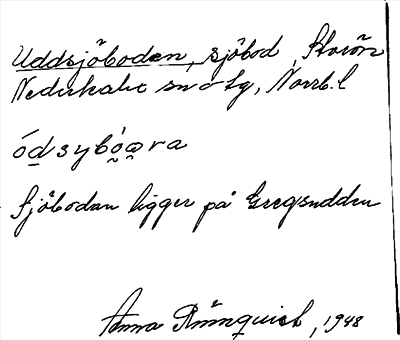 Uddsjöboden, sjöbod, Storön
Nederkalix sn o tg, Norrb. l
ódsybóara
Sjöbodan ligger på Gregsudden
Anna Rönnquist, 1948